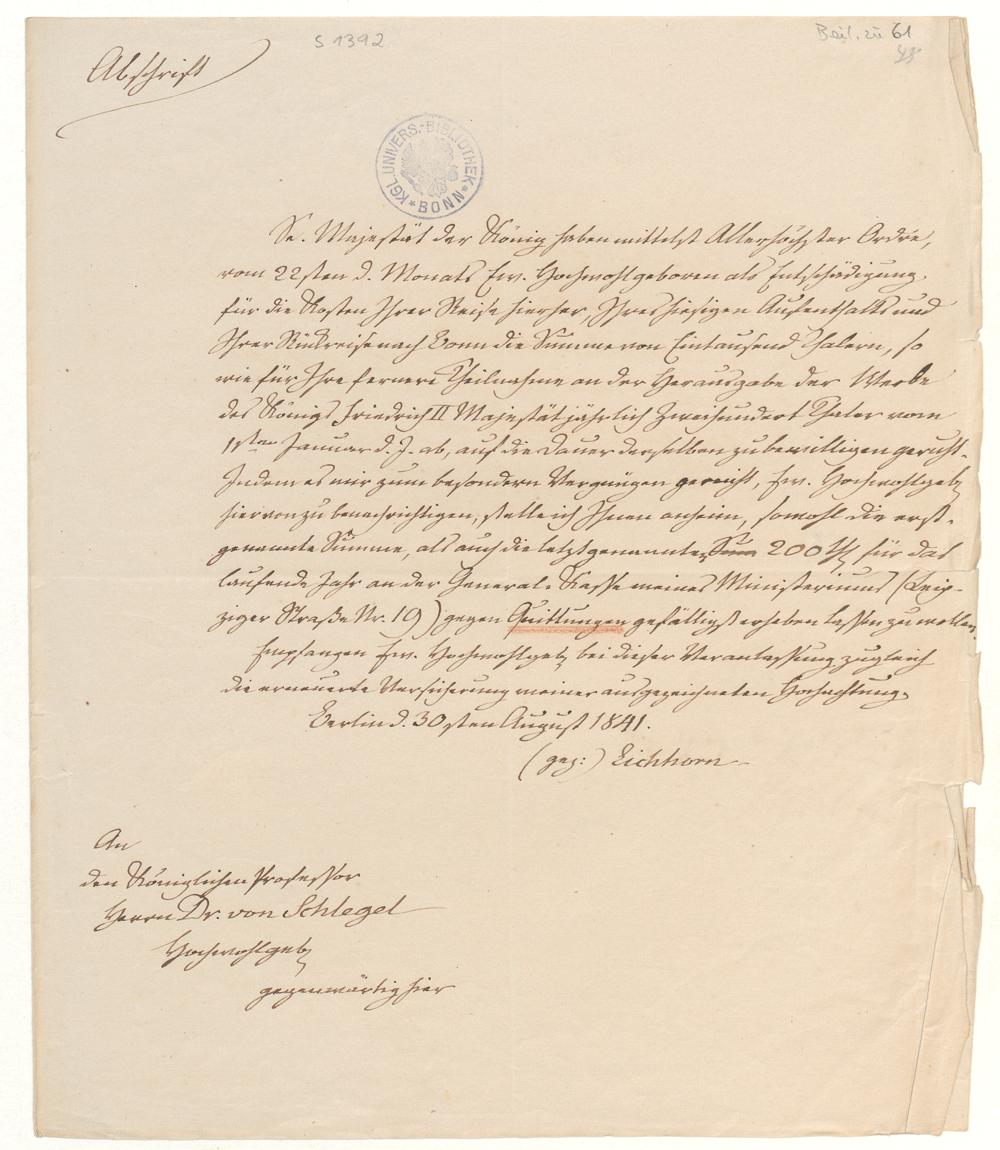 S 1392
Beil. zu 61
Abschrift
KGL. UNIVERS.-BIBLIOTHEK * BONN *
Se. Majestät der König haben mittelst Allerhöchster Ordre,
vom 22sten d. Monats Ew. Hochwohlgeboren als Entschädigung
für die Kosten Ihrer Reise hierher, Ihres hiesigen Aufenthalts und
Ihrer Rückreise nach Bonn die Summe von Eintausend Thalern, so
wie für Ihre fernere Theilnahme an der Herausgabe der Werke
des Königs Friedrich II Majestät jährlich Zweihundert Thaler vom
1sten Januar d. J. ab, auf die Dauer derselben zu bewilligen geruht.
Indem es mir zum besondern Vergnügen gereicht, Ew. Hochwohlgeb
hiervon zu benachrichtigen, stelle ich Ihnen anheim, sowohl die erst-
genannte Summe, als auch die letztgenannten Sum 200 Thl für das
laufende Jahr an der General-Kasse meines Ministeriums (Leip-
ziger Straße Nr. 19) gegen Quittungen gefälligst erheben lassen zu wollen.
Empfangen Ew. Hochwohlgeb bei dieser Veranlassung zugleich
die erneuerte Versicherung meiner ausgezeichneten Hochachtung.
Berlin d. 30sten August 1841.
(gez:) Eichhorn
An
den Königlichen Professor
Herrn Dr. von Schlegel
Hochwohlgeb
gegenwärtig hier